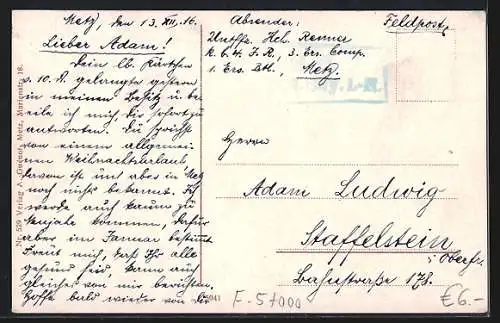 Metz, den 13. XII. 16.
Lieber Adam!
Dein lb. Kärtchen
v. 10. ds. gelangte gestern
in meinen Besitz u. be-
eile ich mich Dir sofort zu
antworten. Du sprichst
von einem allgemei-
nen Weihnachtsurlaub,
davon ist uns aber in Metz
noch nichts bekannt. Ich
werde auch kaum zu
Neujahr kommen, dafür
aber im Januar bestimmt.
Freut mich, daß Ihr alle
gesund seid, kann auch
gleiches von mir berichten.
Hoffe bald wieder von Dir
Absender:
Untffz. Hch. Renner
K. b. 4. I. R., 3. Ers. Comp.
1. Ers. Btl., Metz.
Feldpost
Herrn
Adam Ludwig
Staffelstein
i/Oberfr.
Bahnstraße 178.
Nr. 559 Verlag A. Guenot, Metz, Marienstr. 18.
F-57000
€6.-